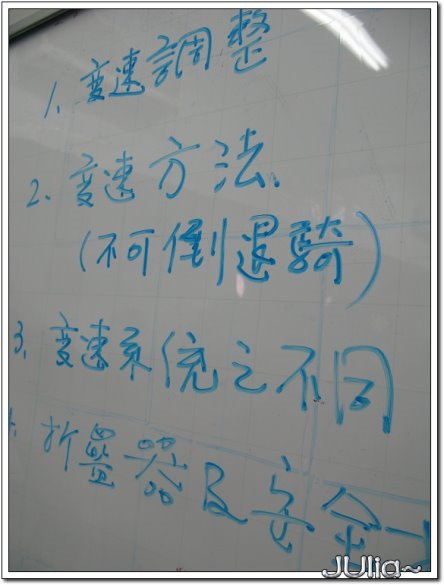 1. 变速調整
2. 变速方法
(不可倒退騎)
3. 变速系統之不同
4. 折疊器及安全
JUlia~